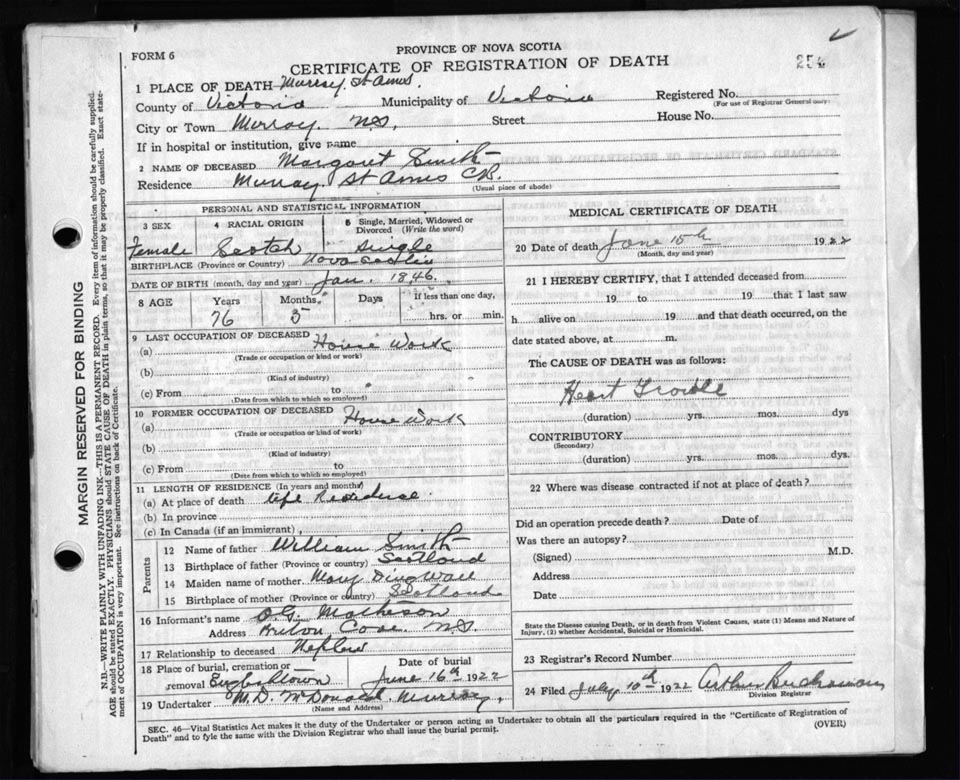 FORM 6
PROVINCE OF NOVA SCOTIA
CERTIFICATE OF REGISTRATION OF DEATH
254
1 PLACE OF DEATH Murray, St Anns.
County of Victoria Municipality of Victoria Registered No.
(For use of Registrar General only)
City or Town Murray. N.S. Street House No.
If in hospital or institution, give name
2 NAME OF DECEASED Margaret Smith
Residence Murray St Anns CB.
(Usual place of abode)
PERSONAL AND STATISTICAL INFORMATION
3 SEX 4 RACIAL ORIGIN 5 Single, Married, Widowed or Divorced (Write the word)
Female Scotch Single
BIRTHPLACE (Province or Country) Nova Scotia
DATE OF BIRTH (month, day and year) Jan. 1846.
8 AGE Years Months Days If less than one day,
76 5 hrs. or min.
9 LAST OCCUPATION OF DECEASED House Work
(a)
(Trade or occupation or kind or work)
(b)
(Kind of industry)
(c) From to
(Date from which to which so employed)
10 FORMER OCCUPATION OF DECEASED House Work
(a)
(Trade or occupation or kind of work)
(b)
(Kind of industry)
(c) From to
(Date from which to which so employed)
11 LENGTH OF RESIDENCE (In years and months)
(a) At place of death life Residence.
(b) In province
(c) In Canada (if an immigrant)
Parents
12 Name of father William Smith
13 Birthplace of father (Province or country) Scotland
14 Maiden name of mother Mary Dingwall
15 Birthplace of mother (Province or country) Scotland
16 Informant's name Matheson
Address Briton Cove N.S.
17 Relationship to deceased Nephew
18 Place of burial, cremation or removal Englishtown
Date of burial June 16th 1922
19 Undertaker M.D. McDonald Murray,
(Name and Address)
MEDICAL CERTIFICATE OF DEATH
20 Date of death June 15th 1922
(Month, day and year)
21 I HEREBY CERTIFY, that I attended deceased from
19 to 19 that I last saw
h alive on 19 and that death occurred, on the
date stated above, at m.
The CAUSE OF DEATH was as follows:
Heart Trouble
(duration) yrs. mos. dys
CONTRIBUTORY
(Secondary)
(duration) yrs. mos. dys.
22 Where was disease contracted if not at place of death?
Did an operation precede death? Date of
Was there an autopsy?
(Signed) M.D.
Address
Date
State the Disease causing Death, or in death from Violent Causes, state (1) Means and Nature of Injury, (2) whether Accidental, Suicidal or Homicidal.
23 Registrar's Record Number
24 Filed July 10th 1922 Arthur Buchanan
Division Registrar
SEC. 46—Vital Statistics Act makes it the duty of the Undertaker or person acting as Undertaker to obtain all the particulars required in the "Certificate of Registration of
Death" and to fyle the same with the Division Registrar who shall issue the burial permit.
(OVER)
MARGIN RESERVED FOR BINDING
N.B.—WRITE PLAINLY WITH UNFADING INK—THIS IS A PERMANENT RECORD. Every item of information should be carefully supplied.
AGE should be stated EXACTLY. PHYSICIANS should STATE CAUSE OF DEATH in plain terms, so that it may be properly classified. Exact statement of OCCUPATION is very important. See instructions on back of Certificate.